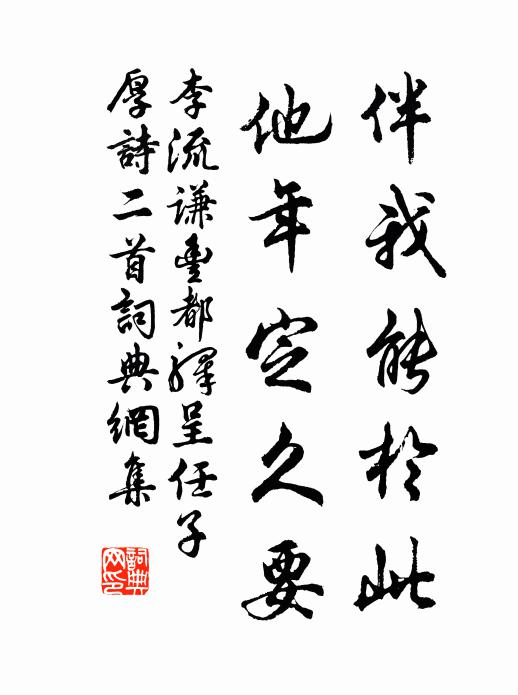 伴我能於此
他年定久要
李流謙豐都驛呈任子
厚詩二首詞典網集
詞典網印